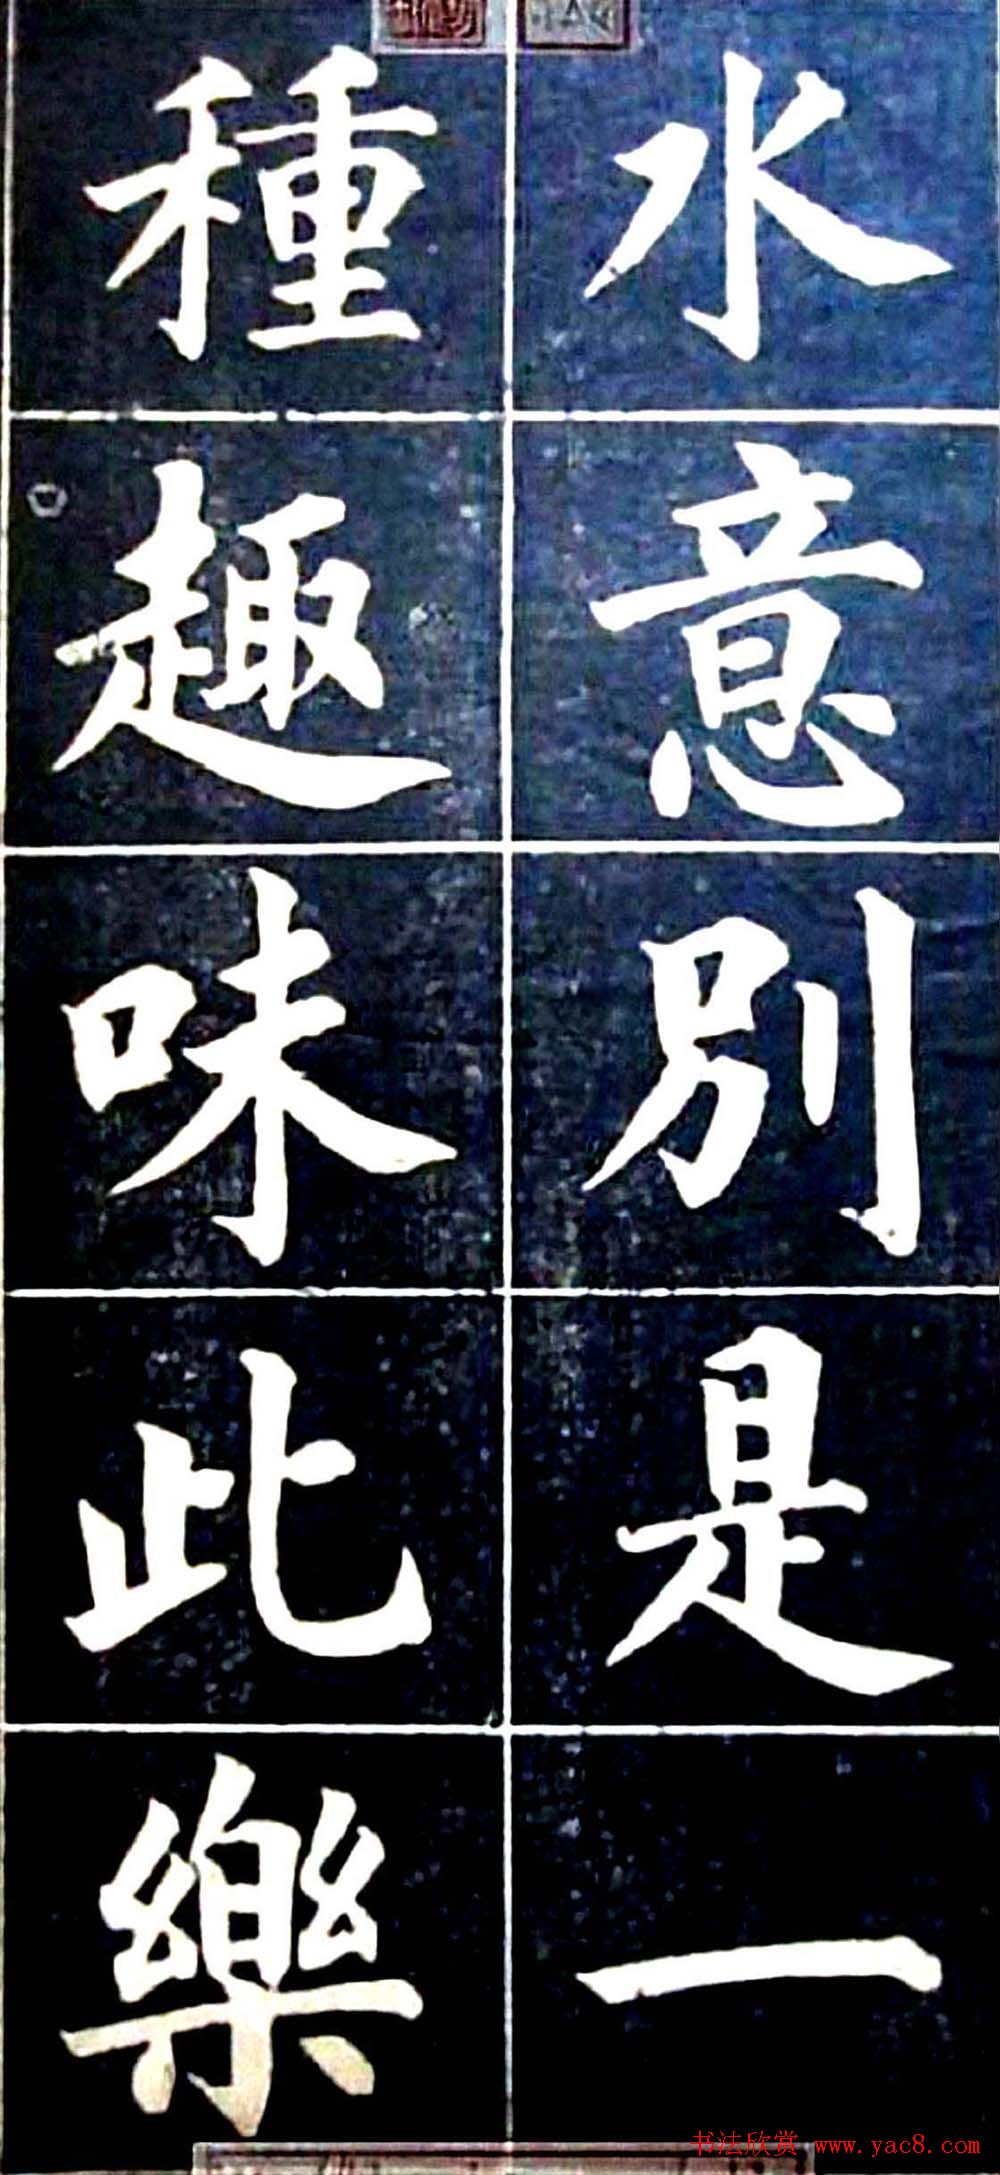 水意別是一
種趣味此樂
书法欣赏 www.yac8.com